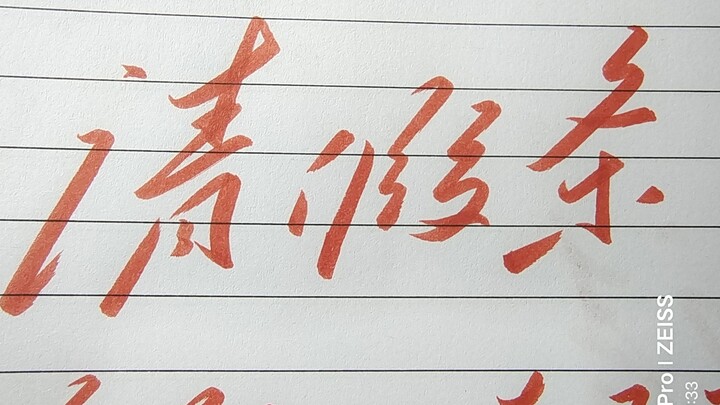 请假条
Pro | ZEISS
:33